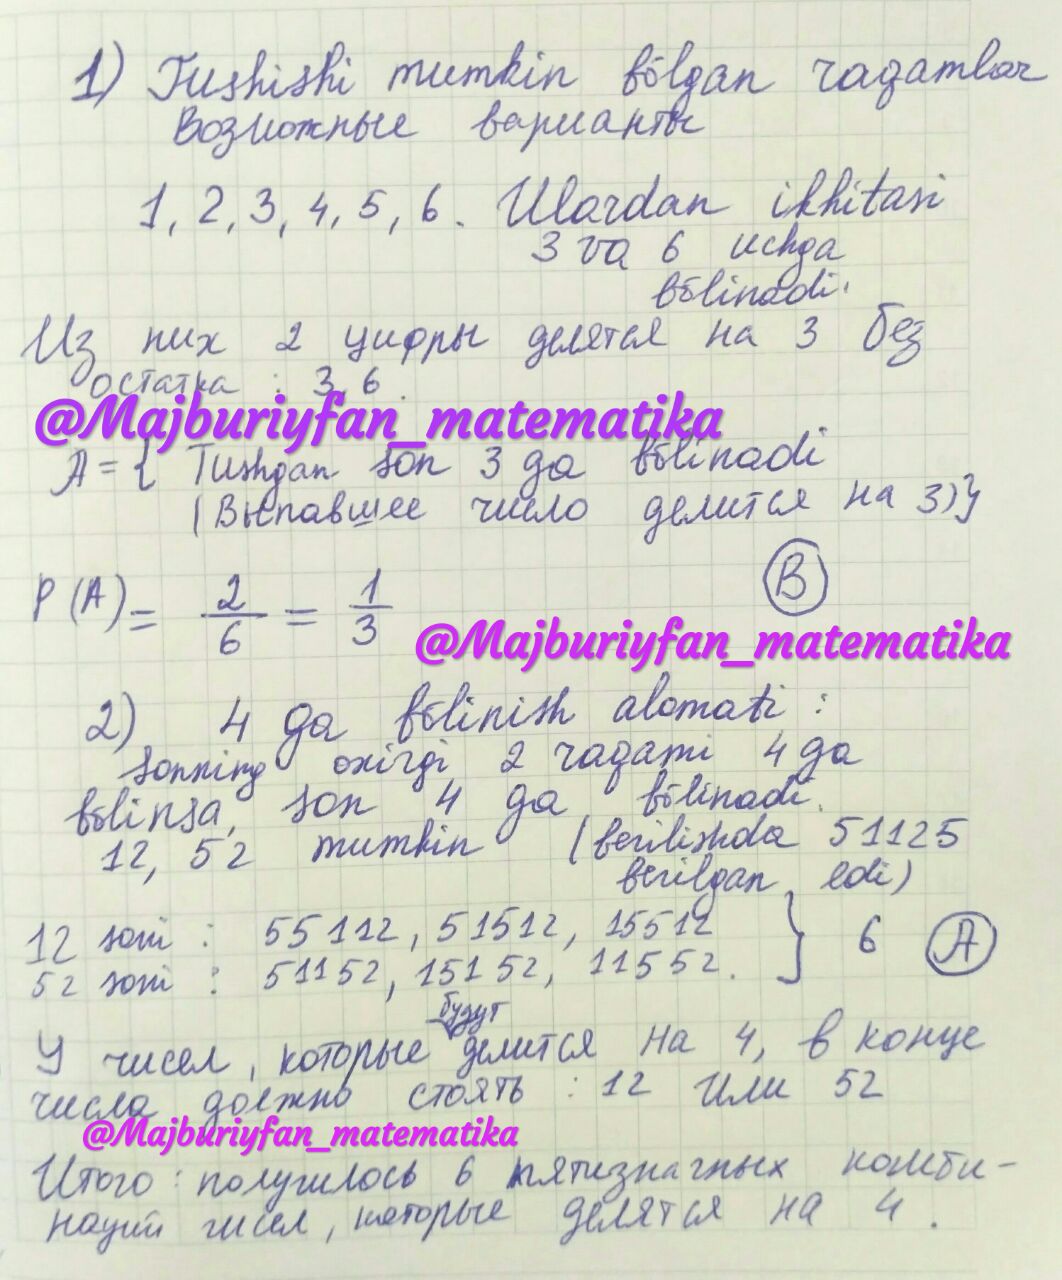 1) Tushishi mumkin bõlgan raqamlar
Возможные варианты
1, 2, 3, 4, 5, 6. Ulardan ikkitasi
3 va 6 uchga
bõlinadi.
Из них 2 цифры делятся на 3 без
остатка : 3, 6.
@Majburiyfan_matematika
A = { Tushgan son 3 ga bõlinadi
(Выпавшее число делится на 3)}
P(A) = 2/6 = 1/3 B
@Majburiyfan_matematika
2) 4 ga bõlinish alomati :
sonning oxirgi 2 raqami 4 ga
bõlinsa, son 4 ga bõlinadi.
12, 52 mumkin (berilishda 51125
berilgan edi)
12 soni : 55112, 51512, 15512 } 6 A
52 soni : 51152, 15152, 11552.
будут
У чисел, которые делится на 4, в конце
числа должно стоять : 12 или 52
@Majburiyfan_matematika
Итого : получилось 6 пятизначных комби-
наций чисел, которые делятся на 4.